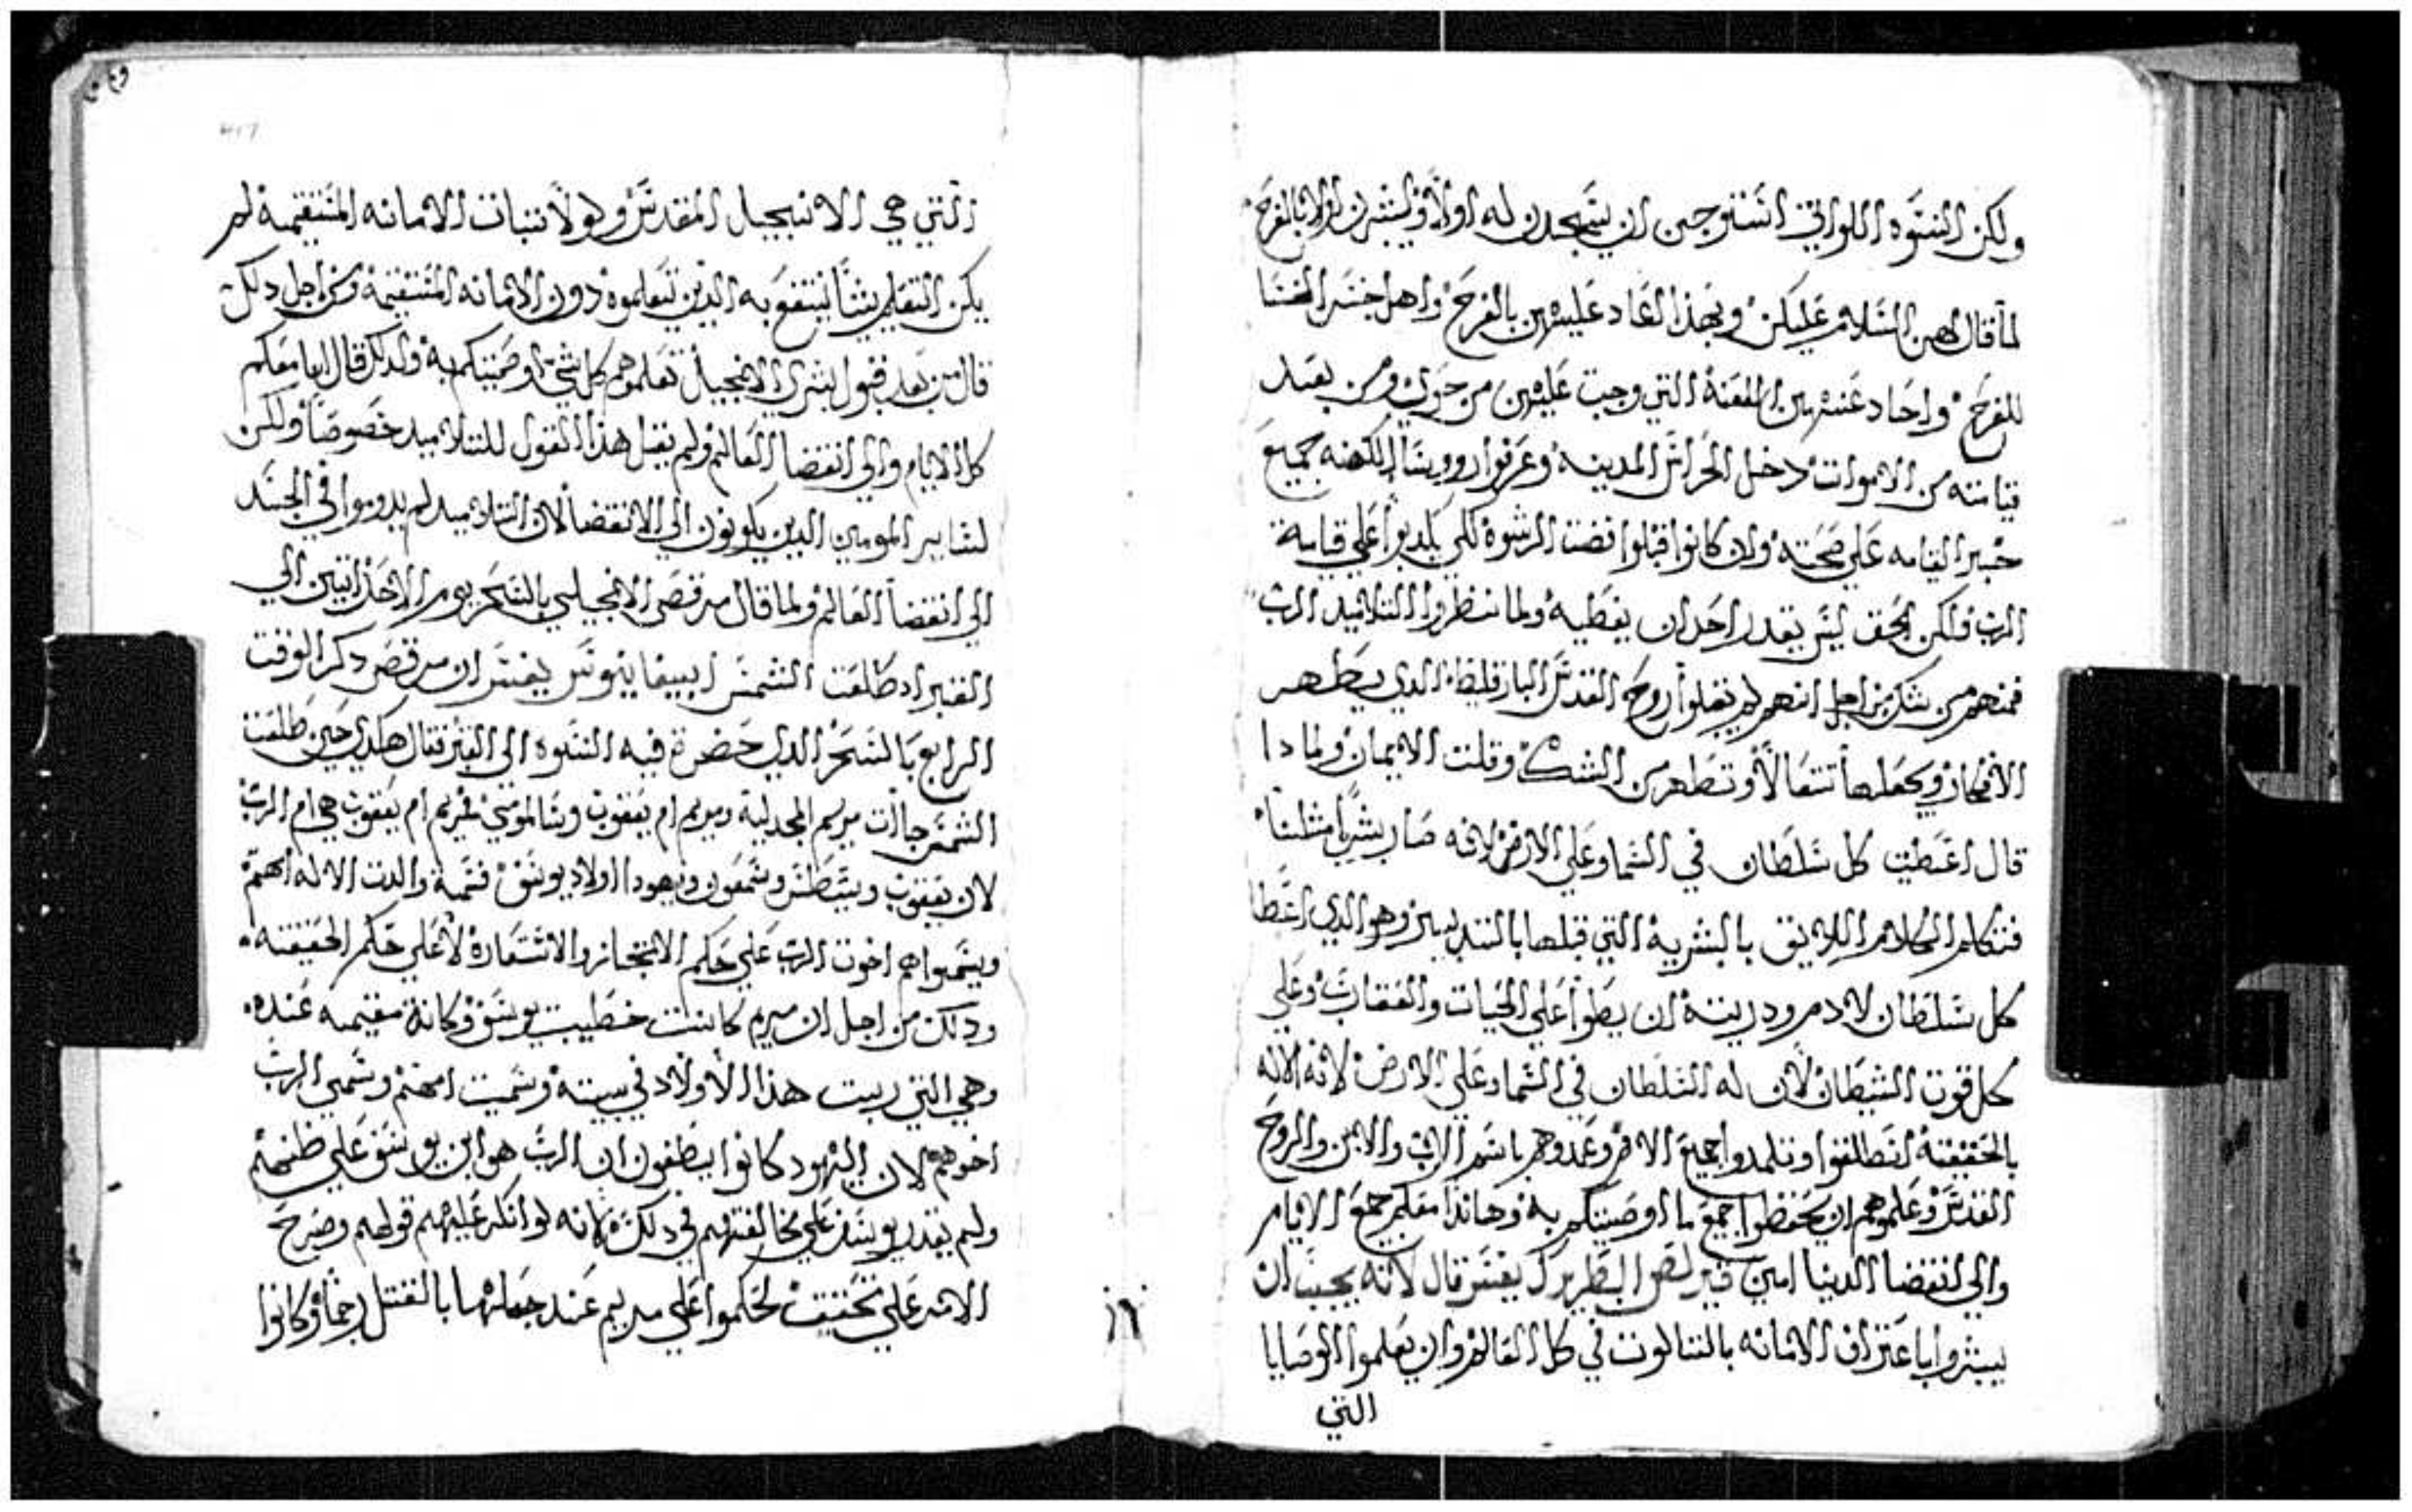 ولكن النسوه اللواتي استوجبن ان يسجدن له اولا ويبشرن اولا بالفرح
لما قال لهن السلام عليكن وبهذا العاد عليهن بالفرح واهل اخسر الخنسا
للفرح واحاد عنهن اللعنه التي وجبت عليهن من حوي ومن بعد
قيامته من الاموات دخل الحراس المدينه وعرفوا روسا الكهنه جميع
خبر القيامه علي صحته وان كانوا قبلوا فضت الرشوه لكي يكدبوا علي قيامة
الرب فلكن الحق ليس يقدر احد ان يغطيه ولما نظروا التلاميد الرب
فمنهم من شك من اجل انهم لم يقبلوا روح القدس البارقليط الدي يطهر
الافكار ويجعلها تتعالا وتطهر من الشك وقلت الايمان ولما دا
قال اعطيت كل سلطان في السما وعلي الارض لانه صار بشريا مثلنا
فتكلم الكلام اللايق بالبشرية التي قبلها بالتدبير وهو الدي اعطا
كل سلطان لادم ودريته ان يطوا علي الحيات والعقارب وعلي
كل قوت الشيطان لان له السلطان في السما وعلي الارض لانه الاله
بالحقيقة انطلقوا وتلمدوا جميع الامم وعمدوهم باسم الاب والابن والروح
القدس وعلموهم ان يحفظوا جميع ما اوصيتكم به وهاندا معكم جميع الايام
والي انقضا الدنيا امين قيرلص البطريرك يفسر قال لانه يجب ان
يبشروا باعتراف الامانه بالتالوت في كل العالم وان يعلموا الوصايا
التي
التي هي الانجيل المقدس ولولا تبات الامانه المستقيمة لم
يكن التعليم شيا ينتفع به الدين تعلموه دون الامانه المستقيمة ومن اجل دلك
قال من بعد قبول بشري الانجيل تعلموهم كل شي اوصيتكم به ولدلك قال انا معكم
كل الايام والي انقضا العالم ولم يقل هذا القول للتلاميد خصوصا ولكن
لساير المومين الدين يكونون الي الانقضا لان التلاميد لم يدوموا في الجسد
الي انقضا العالم ولما قال مرقص الانجيلي بالسحر يوم الاحد اتين الي
القبر اد طلعت الشمس ابيفانيوس يفسر ان مرقص دكر الوقت
الرابع بالسحر الدي حضرة فيه النسوه الي القبر فقال هكدي حين طلعت
الشمس جاات مريم المجدلية ومريم ام يعقوب وسالومي فمريم ام يعقوب هي ام الرب
لان يعقوب ويسطس وشمعون ويهودا اولاد يوسف فسمية والدت الاله امهم
ويسموا هم اخوت الرب علي حكم الاتجاز والاستعارة لا علي حكم الحقيقة
ودلك من اجل ان مريم كانت خطيبت يوسف وكانة مقيمه عنده
وهي التي ربت هذا الاولاد في بيته وسميت امهم وسمي الرب
اخوهم لان اليهود كانوا يظنون ان الرب هو ابن يوسف علي ظنهم
ولم يقدر يوسف علي مخالفتهم في دلك لانه لو انكر عليهم قولهم وصرح
الامر علي تحقيقت لحكموا علي مريم عند جهلهما بالقتل رجما وكانوا